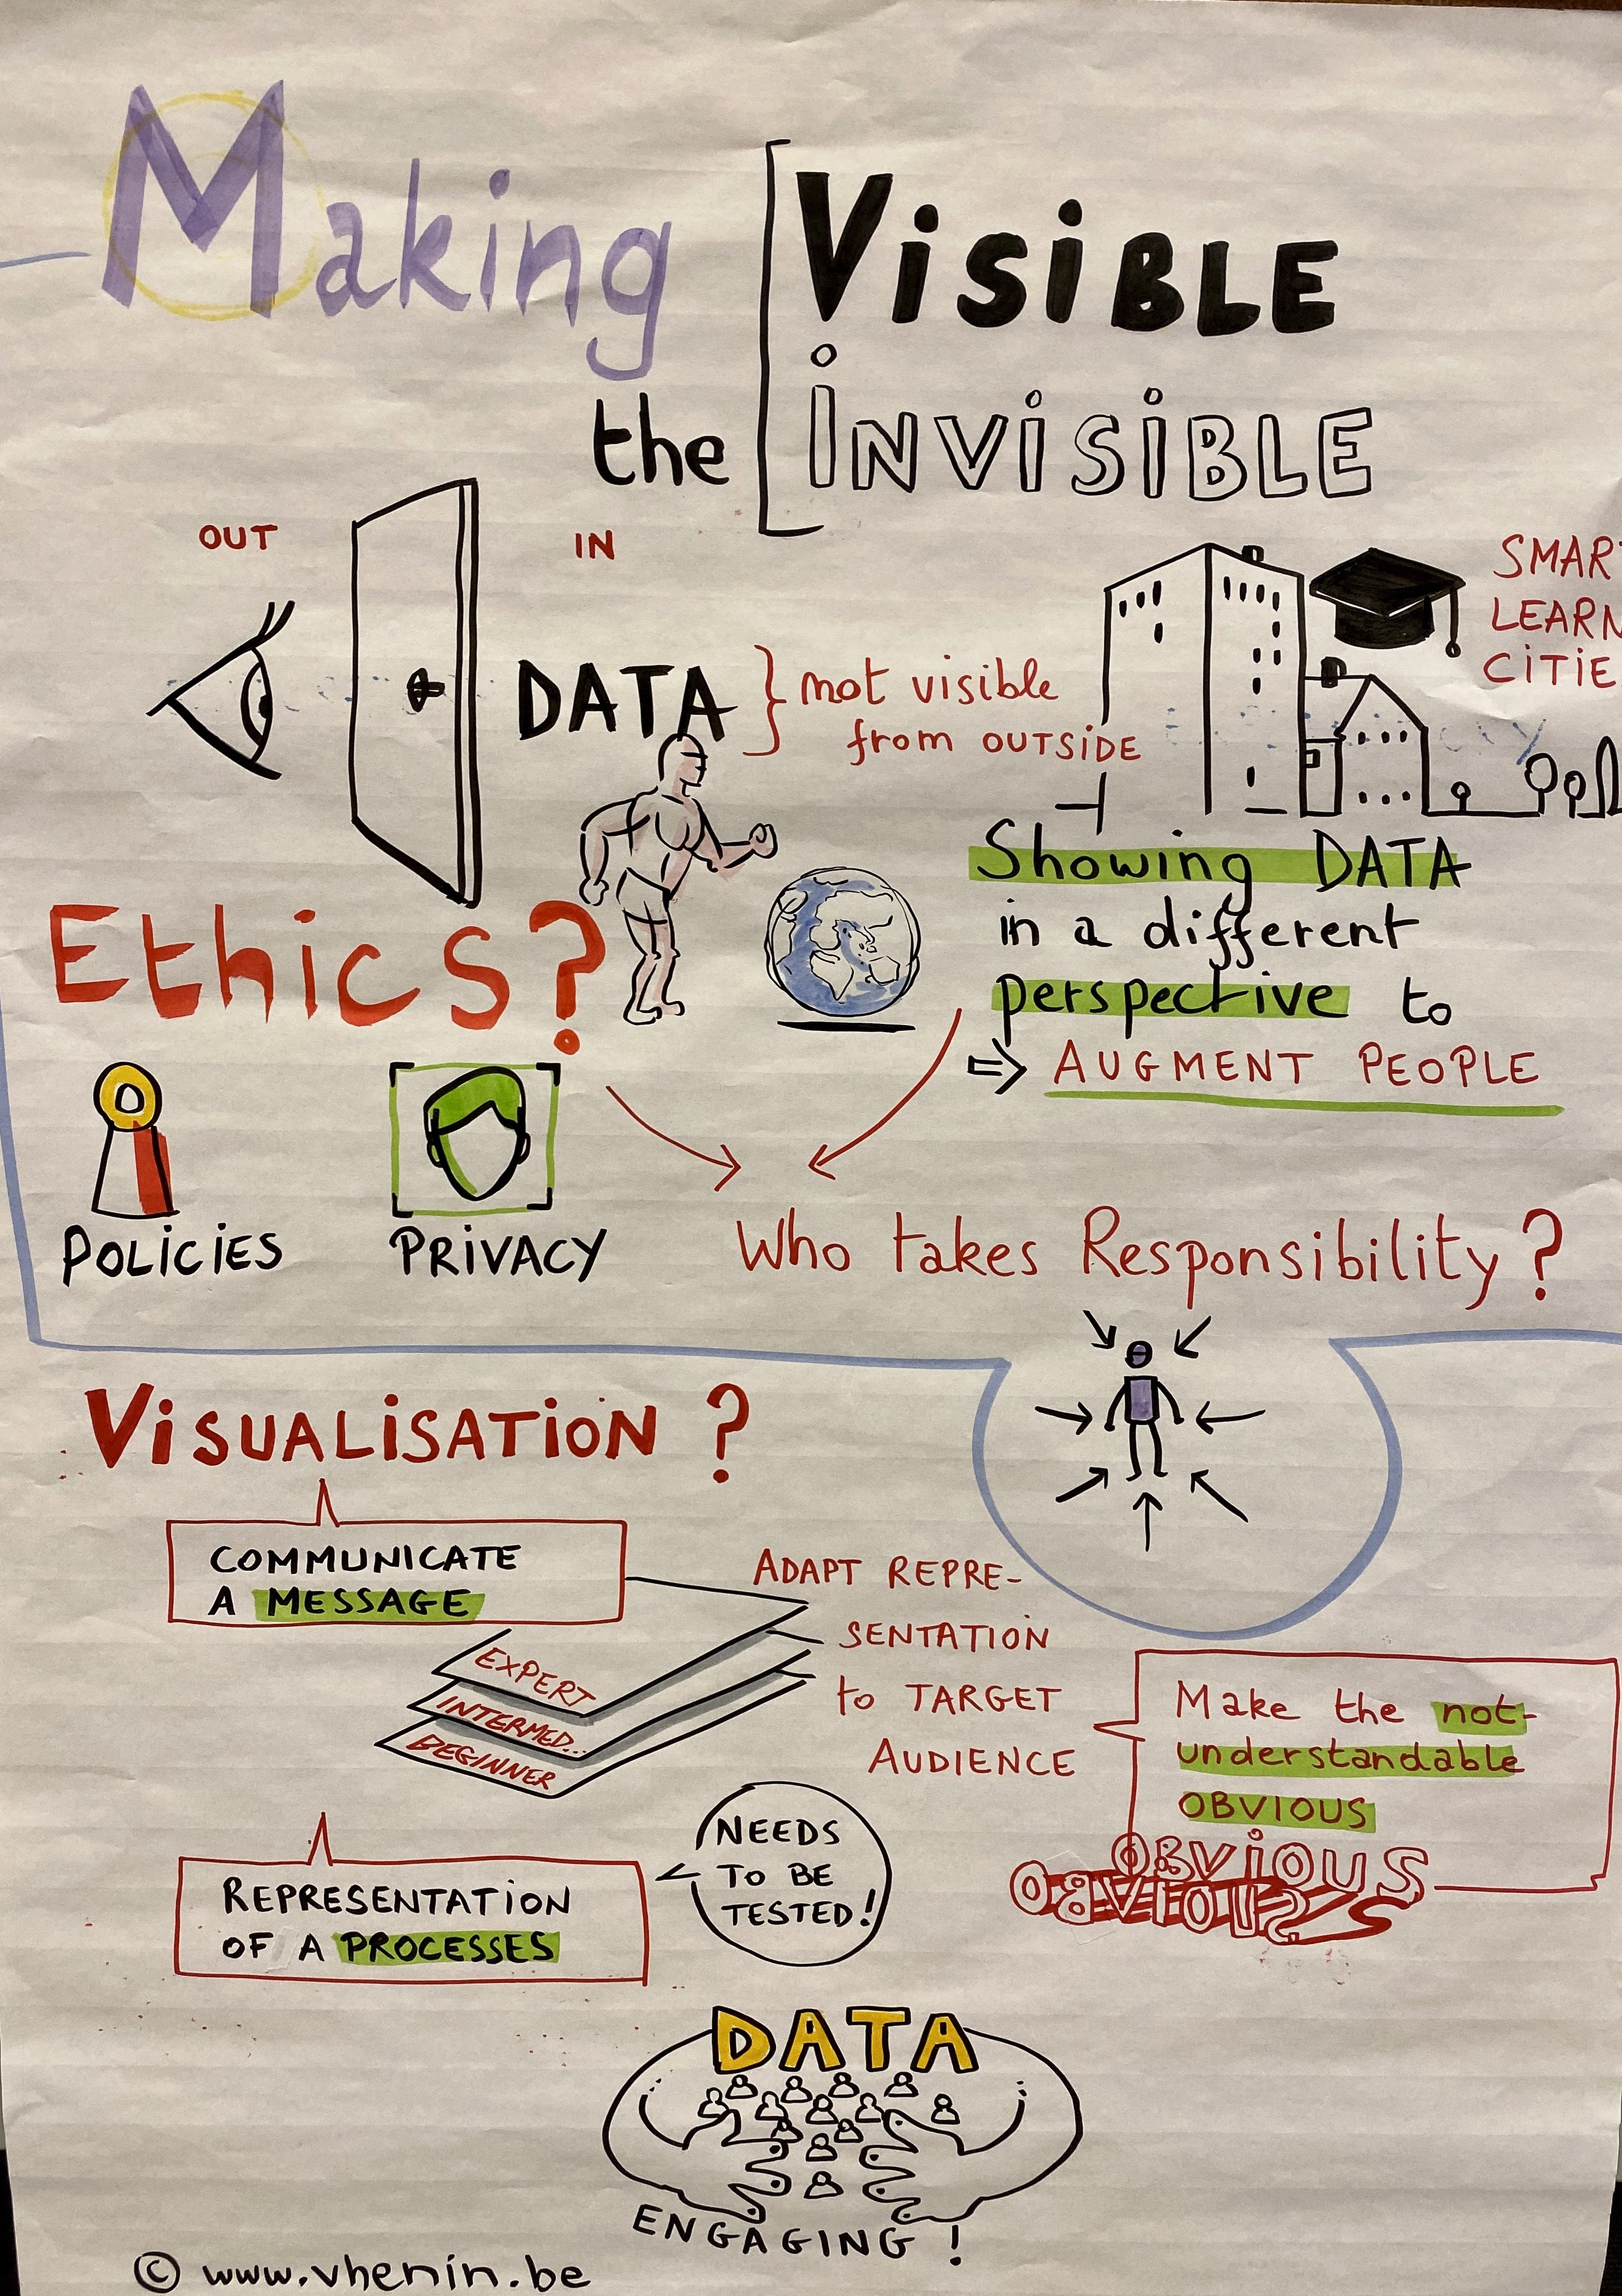 Making
VISIBLE
the INVISIBLE
OUT
IN
DATA
not visible
from OUTSIDE
SMAR
LEARN
CITIE
Showing DATA
in a different
perspective to
⇒ AUGMENT PEOPLE
Ethics?
POLICIES
PRIVACY
Who takes Responsibility?
VISUALISATION ?
COMMUNICATE
A MESSAGE
EXPERT
INTERMED...
BEGINNER
ADAPT REPRE-
SENTATION
to TARGET
AUDIENCE
Make the not-
understandable
OBVIOUS
OBVIOUS
OBVIOUS
REPRESENTATION
OF A PROCESSES
NEEDS
TO BE
TESTED!
DATA
ENGAGING !
© www.vhenin.be